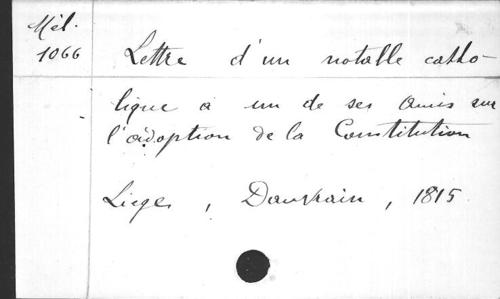 Mél.
1066
Lettre d'un notable catho-
lique à un de ses amis sur
l'adoption de la Constitution
Liége, Dauvrain, 1815